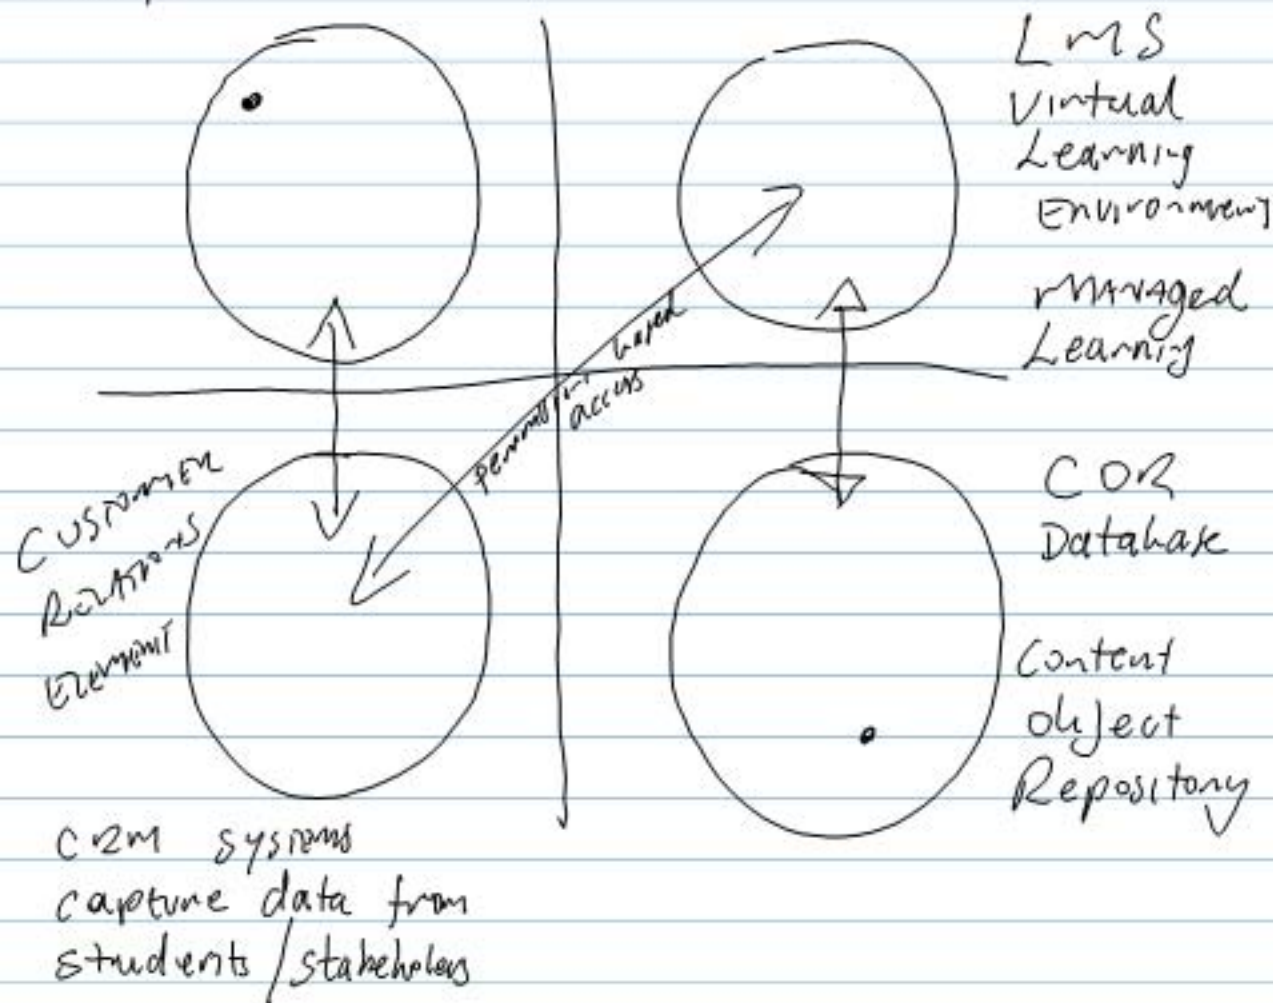 LMS
Virtual
Learning
Environment
MANAged
Learning
based
permission
access
CUSTOMER
RELATIONS
ELEMENT
COR
Database
Content
Object
Repository
CRM systems
capture data from
students/stakeholders